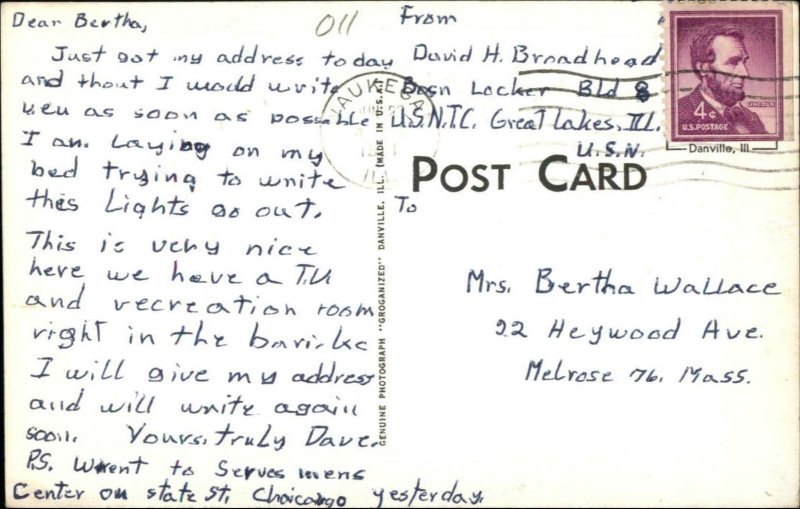 Dear Bertha,
Just got my address today
and thout I would write
you as soon as possible
I am Laying on my
bed trying to write
this Lights go out.
This is very nice
here we have a T.V
and recreation room
right in the barirke
I will give my address
and will write again
soon. Yours, truly Dave.
P.S. Went to Serves mens
Center on state St. Chaicargo yesterday.
011
From
David H. Broadhead
Bosn Locker Bld 8
U.S.N.T.C. Great Lakes, Ill.
U.S.N.
WAUKEGAN
4¢
LINCOLN
U.S. POSTAGE
Danville, Ill
POST CARD
To
Mrs. Bertha Wallace
22 Heywood Ave.
Melrose 76, Mass.
GENUINE PHOTOGRAPH "GROGANIZED" DANVILLE, ILL. (MADE IN U.S.A.)